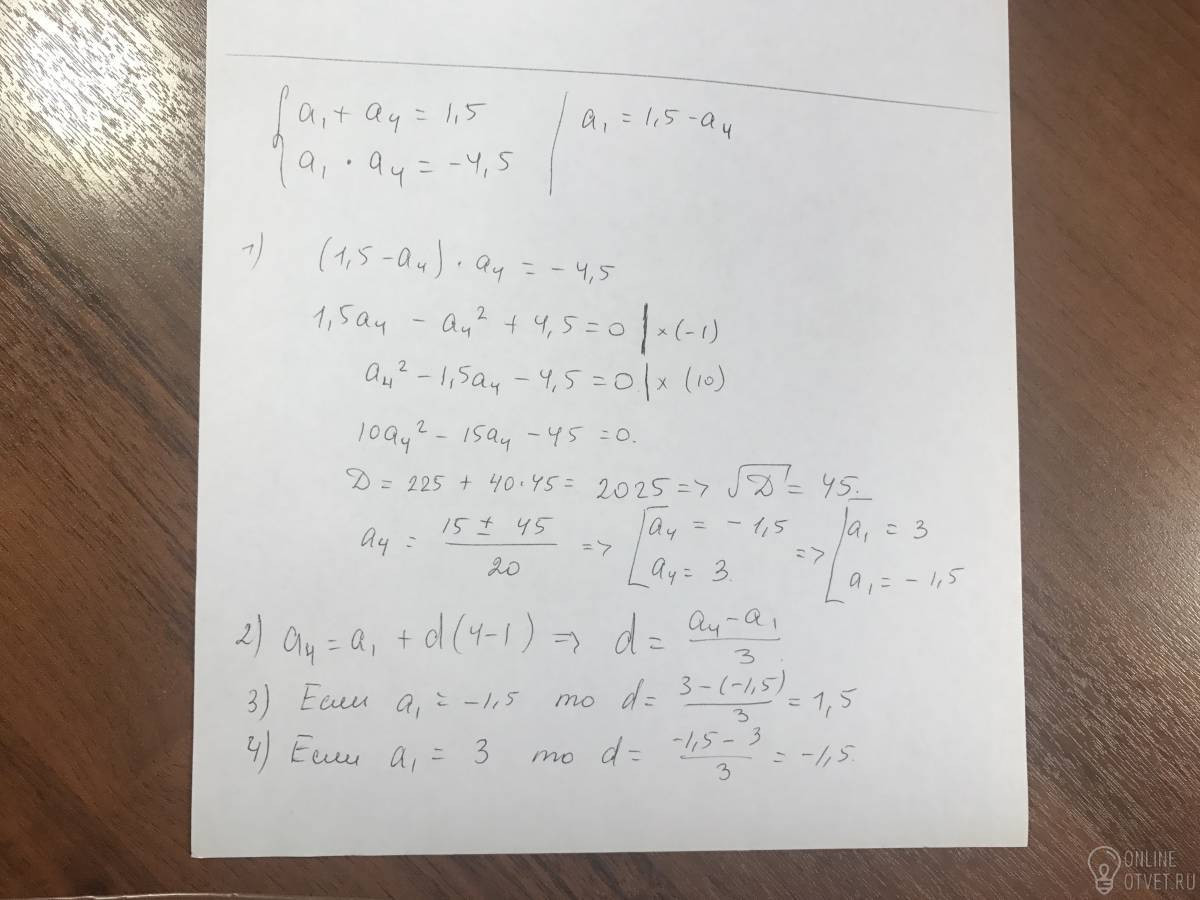 { a₁ + a₄ = 1,5 | a₁ = 1,5 - a₄
{ a₁ · a₄ = -4,5
1) (1,5 - a₄) · a₄ = -4,5
1,5a₄ - a₄² + 4,5 = 0 | × (-1)
a₄² - 1,5a₄ - 4,5 = 0 | × (10)
10a₄² - 15a₄ - 45 = 0.
D = 225 + 40·45 = 2025 => √D = 45.
a₄ = (15 ± 45)/20 => [ a₄ = -1,5 => [ a₁ = 3
[ a₄ = 3. [ a₁ = -1,5
2) a₄ = a₁ + d(4-1) => d = (a₄ - a₁)/3.
3) Если a₁ = -1,5 то d = (3-(-1,5))/3 = 1,5
4) Если a₁ = 3 то d = (-1,5 - 3)/3 = -1,5.
ONLINE
OTVET.RU